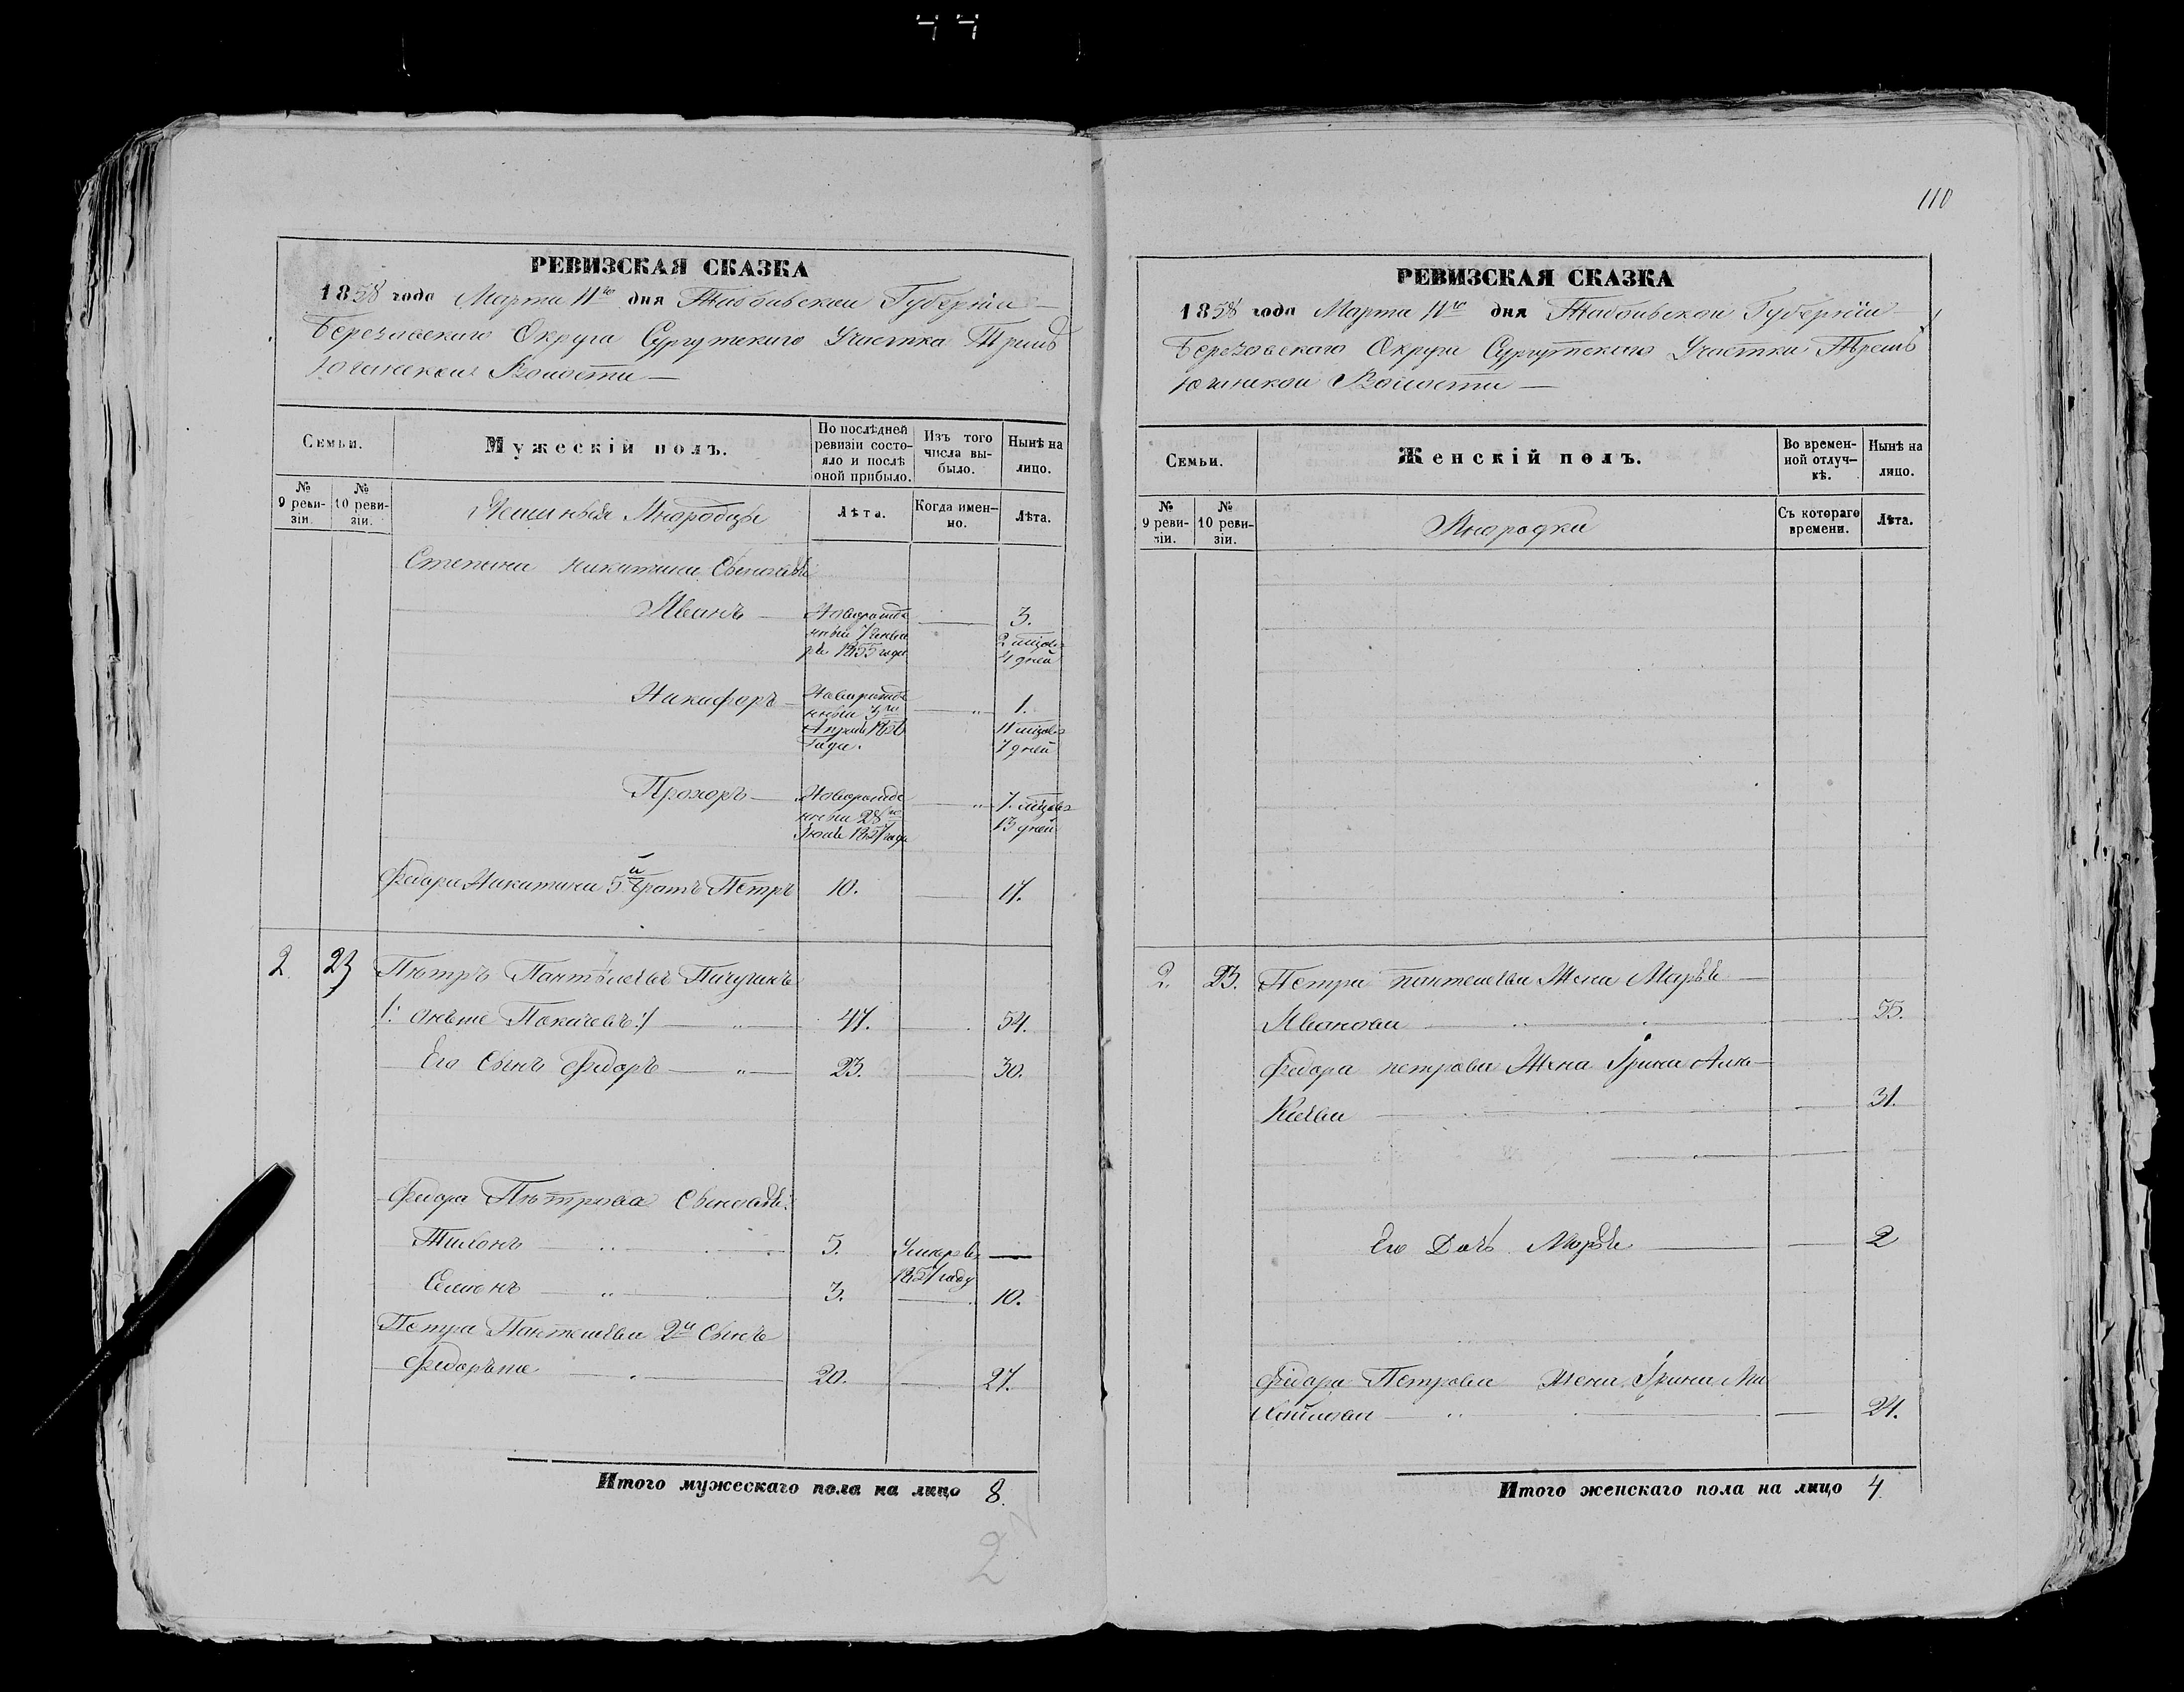 110
РЕВИЗСКАЯ СКАЗКА
1858 года Марта 11го дня Тобольской Губерніи
Березовскаго Округа Сургутскаго Участка Тримъ
Юганской Волости
Семьи.
Мужескій полъ.
По послѣдней ревизіи состояло и послѣ оной прибыло.
Изъ того числа выбыло.
Нынѣ на лицо.
№ 9 ревизіи.
№ 10 ревизіи.
Инародцы
Лѣта.
Когда именно.
Лѣта.
Степана Никитина Сыновья
Иванъ
Новорожде
нный 7 Генва
ря 1855 года
3.
2 мѣцовъ
4 дней
Никифоръ
Новорожде
нный 3го
Апрѣля 1856
года.
1.
11 мѣцовъ
7 дней
Прохоръ
Новорожде
нный 28го
Іюля 1857 года
7. мѣцовъ
13 дней
Федора Никитина 5й братъ Петръ 10. 17.
2. 23 Пѣтръ Пантѣлѣевъ Пичугинъ
/: онъже Покачевъ :/ 47. 54.
Его Сынъ Федоръ 23. 30.
Федора Пѣтрова Сыновья:
Тихонъ 5. Умеръ въ
1857 году
Семенъ 3. 10.
Петра Пантелѣева 2й Сынъ
Федоръже 20. 27.
Итого мужескаго пола на лицо 8.
2
РЕВИЗСКАЯ СКАЗКА
1858 года Марта 11го дня Тобольской Губерніи
Березовскаго Округа Сургутскаго Участка Тремъ
Юганской Волости
Семьи.
Женскій полъ.
Во временной отлучкѣ.
Нынѣ на лицо.
№ 9 ревизіи.
№ 10 ревизіи.
Инародки
Съ котораго времени.
Лѣта.
2. 23. Петра Пантелѣева Жена Марья
Иванова 55.
Федора петрова Жена Ірина Але
Ксѣева 31.
Его Дочь Марья 2
Федора Петрова Жена Ірина Ми
Хайлова 24.
Итого женскаго пола на лицо 4